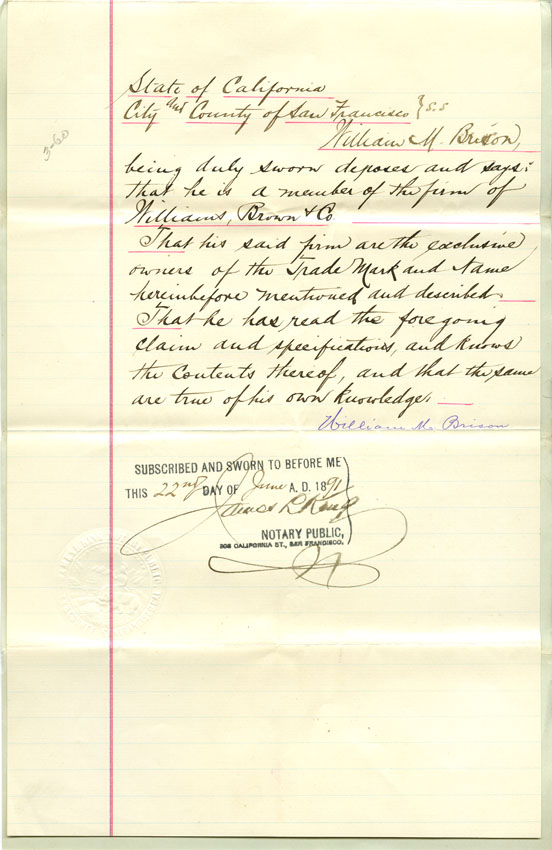 State of California
City and County of San Francisco } S.S
3-60
William M. Brison,
being duly sworn deposes and says:
that he is a member of the firm of
Williams, Brown & Co.
That his said firm are the exclusive
owners of the Trade Mark and Name
hereinbefore mentioned and described
That he has read the foregoing
claim and specifications, and knows
the contents thereof, and that the same
are true of his own knowledge.
William M. Brison
SUBSCRIBED AND SWORN TO BEFORE ME
THIS 22nd DAY OF June A. D. 1891
James R.
NOTARY PUBLIC,
308 CALIFORNIA ST., SAN FRANCISCO.